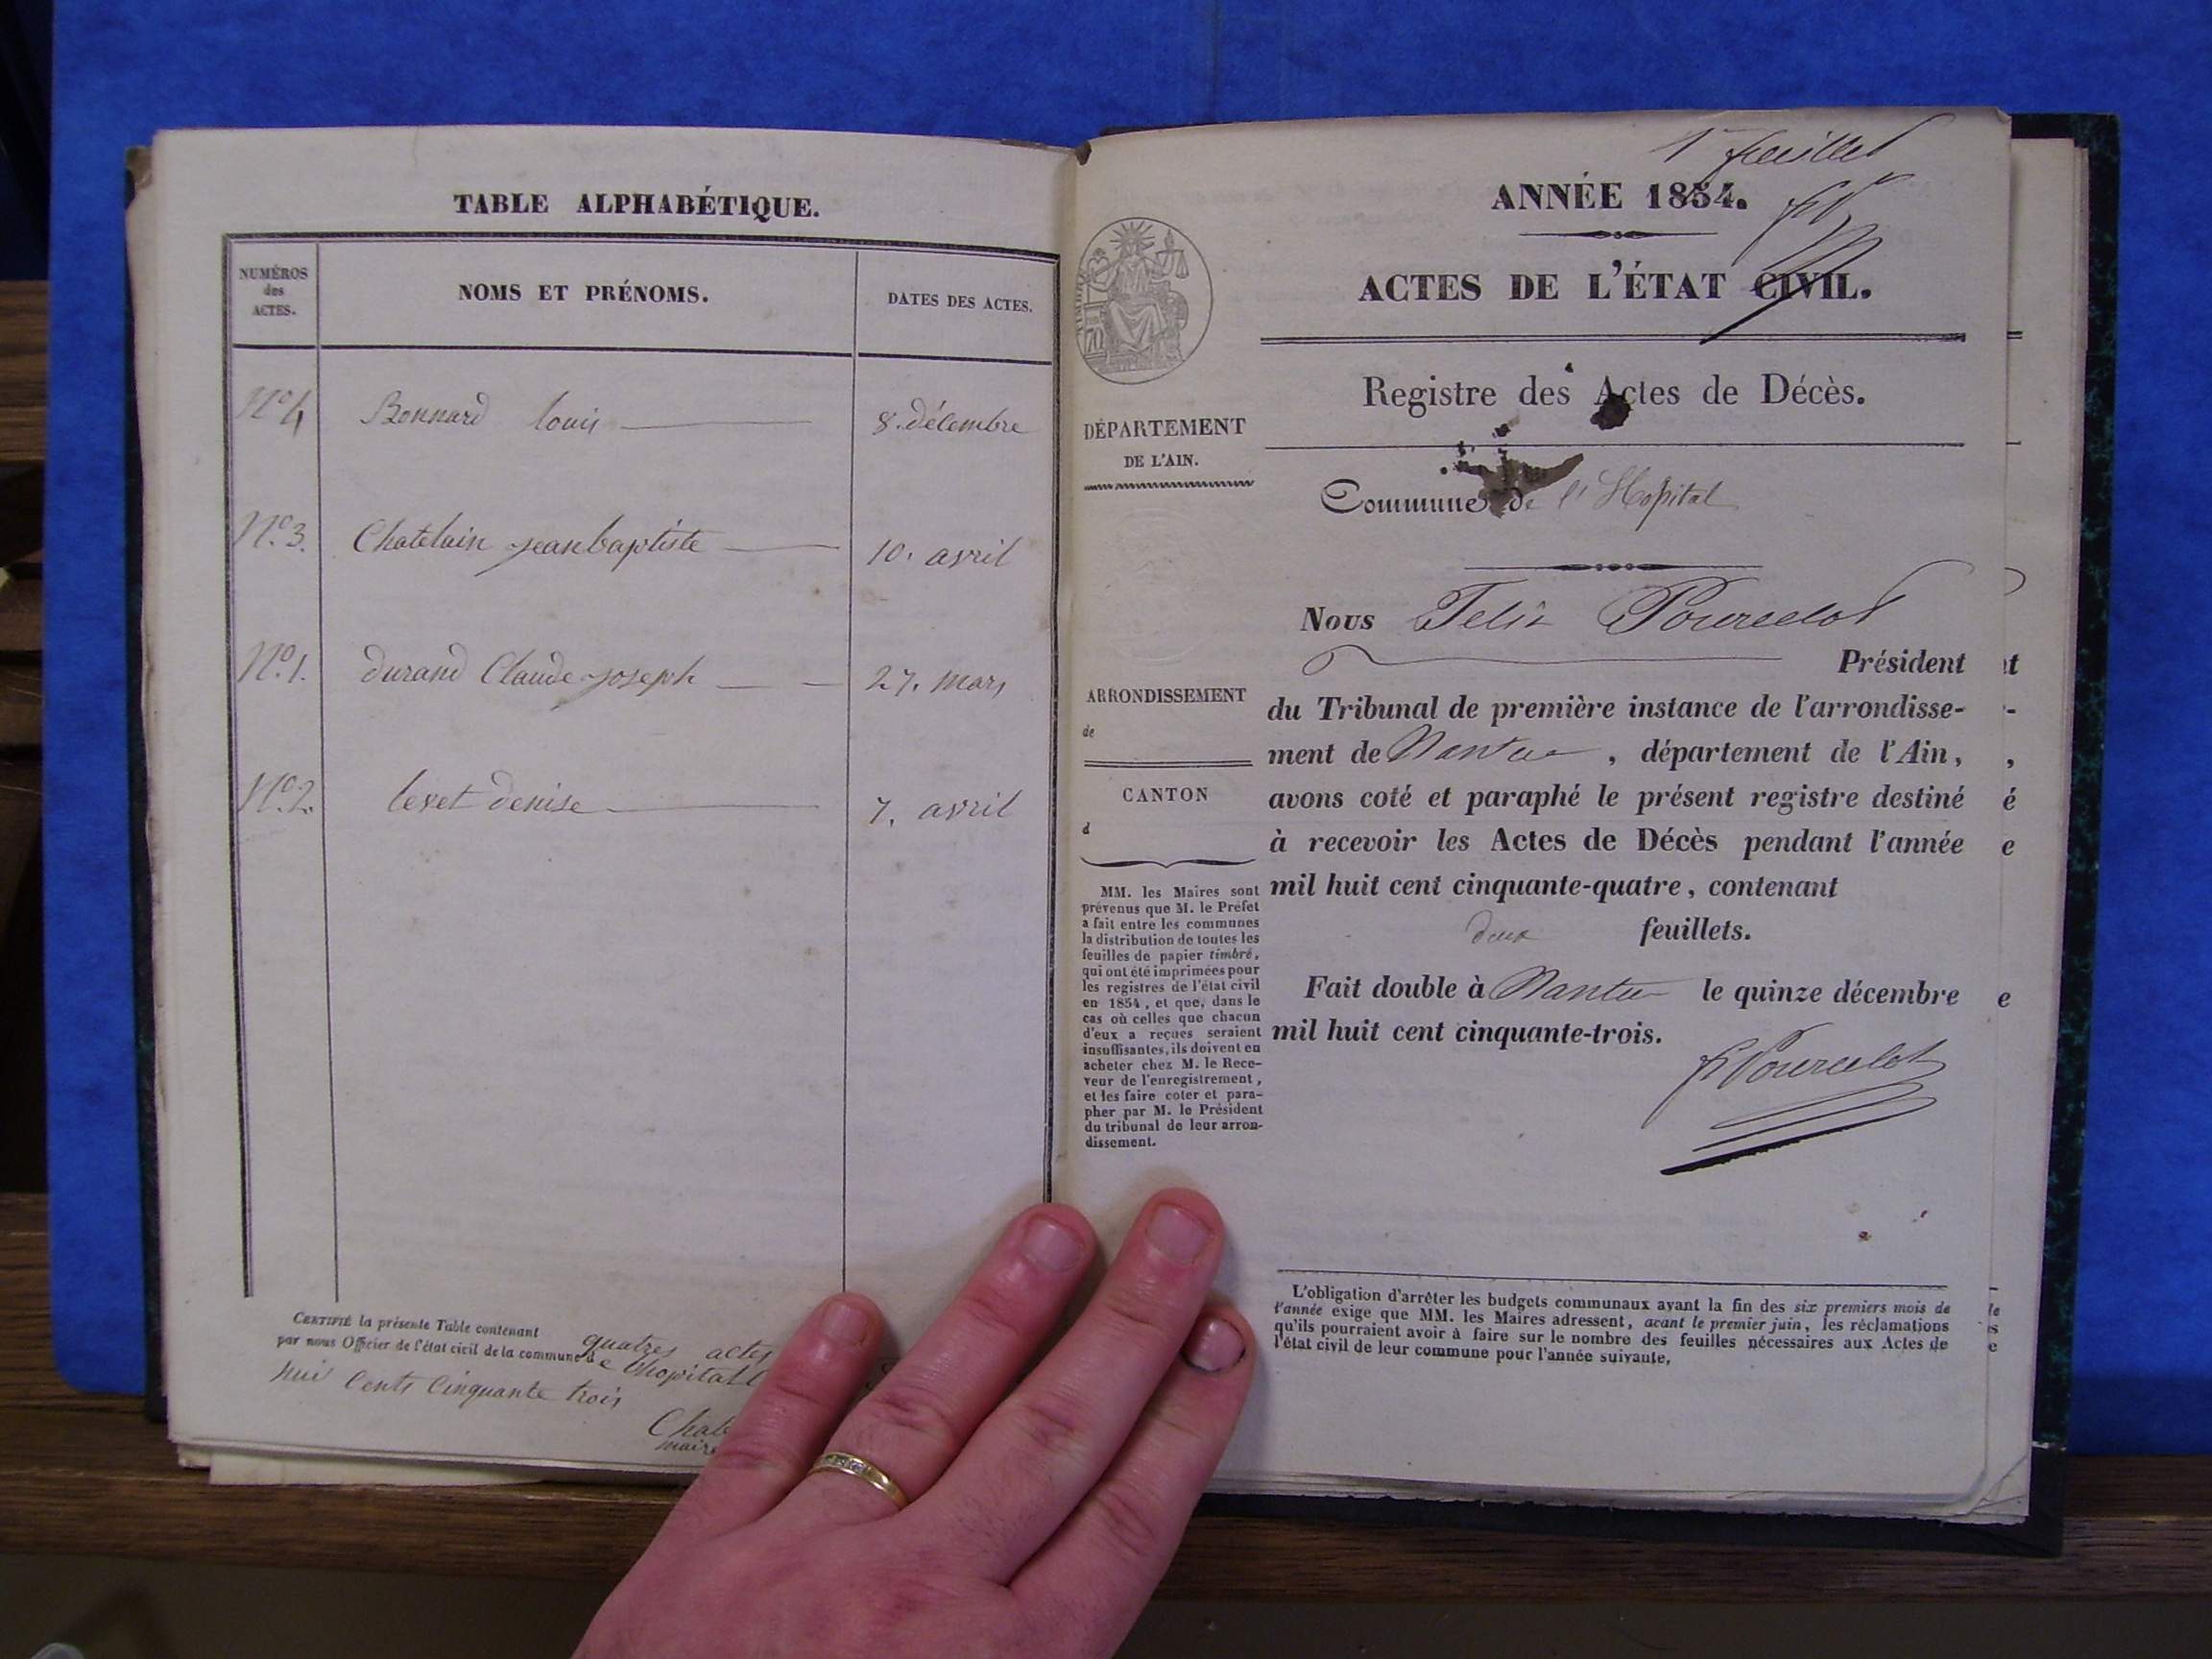 TABLE ALPHABÉTIQUE.
NUMÉROS
des
ACTES.
NOMS ET PRÉNOMS.
DATES DES ACTES.
N.º 4 Bonnard louis 8. décembre
N.º 3. Chatelain jean baptiste 10. avril
N.º 1. durand Claude joseph 27. mars
N.º 2. levet denise 7. avril
CERTIFIÉ la présente Table contenant quatres actes
par nous Officier de l'état civil de la commune de lhopital
huit cents Cinquante trois
maire
1er feuillet
ANNÉE 1854.
ACTES DE L'ÉTAT CIVIL.
Registre des Actes de Décès.
Commune de l'Hopital
DÉPARTEMENT
DE L'AIN.
ARRONDISSEMENT
de
CANTON
d
MM. les Maires sont
prévenus que M. le Préfet
a fait entre les communes
la distribution de toutes les
feuilles de papier timbré,
qui ont été imprimées pour
les registres de l'état civil
en 1854, et que, dans le
cas où celles que chacun
d'eux a reçues seraient
insuffisantes, ils doivent en
acheter chez M. le Rece-
veur de l'enregistrement,
et les faire coter et para-
pher par M. le Président
du tribunal de leur arron-
dissement.
Nous Felix Pourcelot
Président
du Tribunal de première instance de l'arrondisse-
ment de Nantua, département de l'Ain,
avons coté et paraphé le présent registre destiné
à recevoir les Actes de Décès pendant l'année
mil huit cent cinquante-quatre, contenant
deux feuillets.
Fait double à Nantua le quinze décembre
mil huit cent cinquante-trois.
F Pourcelot
L'obligation d'arrêter les budgets communaux avant la fin des six premiers mois de
l'année exige que MM. les Maires adressent, avant le premier juin, les réclamations
qu'ils pourraient avoir à faire sur le nombre des feuilles nécessaires aux Actes de
l'état civil de leur commune pour l'année suivante,